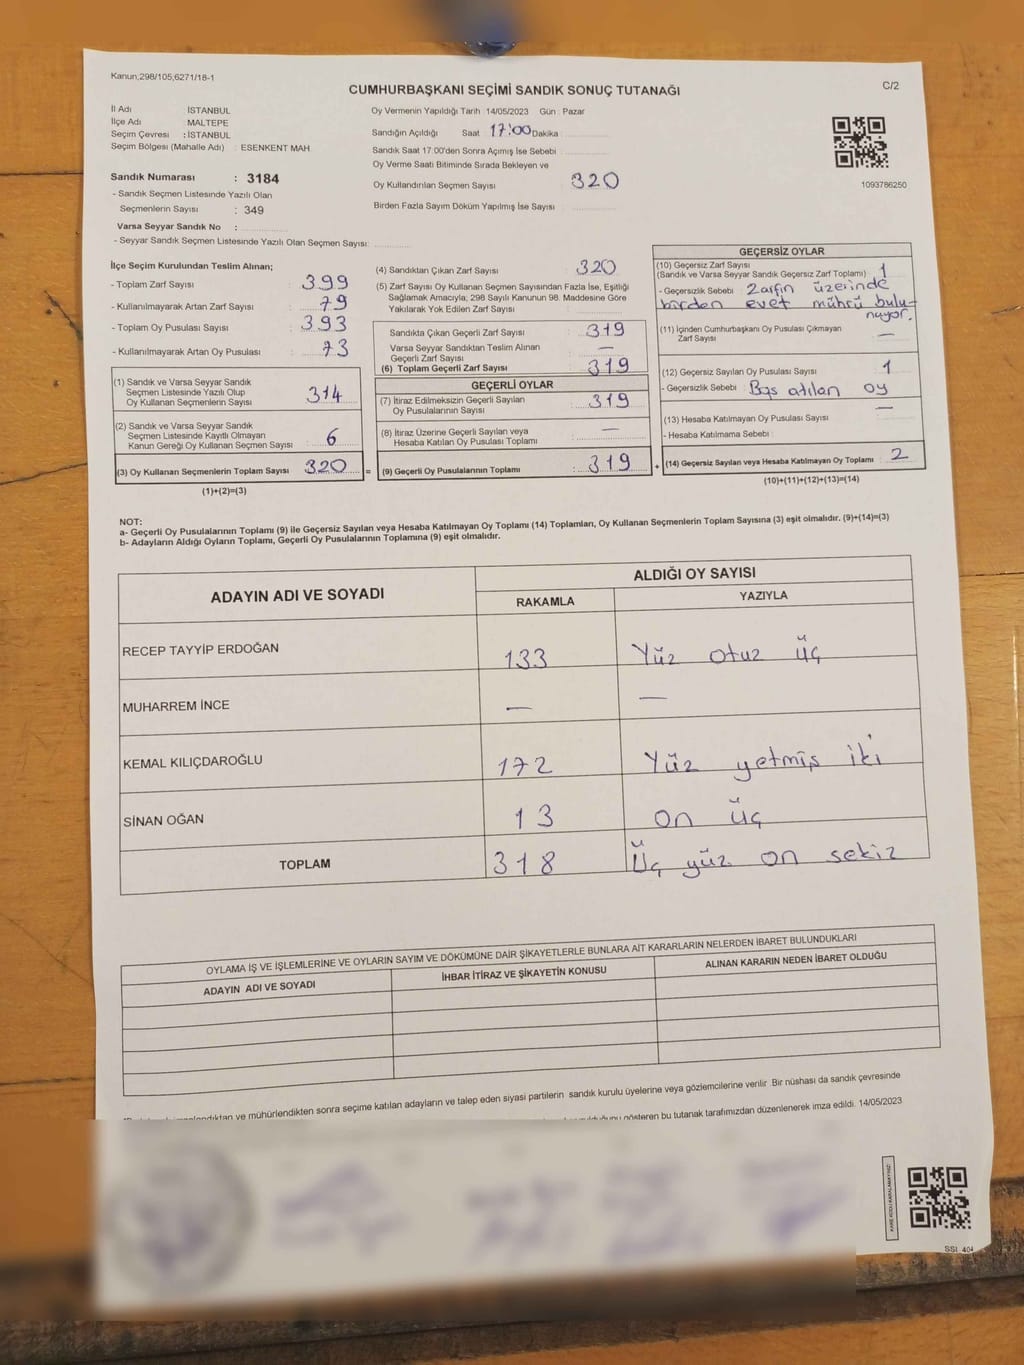 Kanun,298/105,6271/18-1
C/2
CUMHURBAŞKANI SEÇİMİ SANDIK SONUÇ TUTANAĞI
İl Adı İSTANBUL
İlçe Adı MALTEPE
Seçim Çevresi : İSTANBUL
Seçim Bölgesi (Mahalle Adı) : ESENKENT MAH
Sandık Numarası : 3184
- Sandık Seçmen Listesinde Yazılı Olan
Seçmenlerin Sayısı : 349
Varsa Seyyar Sandık No :
- Seyyar Sandık Seçmen Listesinde Yazılı Olan Seçmen Sayısı:
Oy Vermenin Yapıldığı Tarih : 14/05/2023 Gün : Pazar
Sandığın Açıldığı Saat 17:00 Dakika
Sandık Saat 17:00'den Sonra Açımış İse Sebebi
Oy Verme Saati Bitiminde Sırada Bekleyen ve
Oy Kullandırılan Seçmen Sayısı 320
Birden Fazla Sayım Döküm Yapılmış İse Sayısı
1093786250
İlçe Seçim Kurulundan Teslim Alınan;
- Toplam Zarf Sayısı 399
- Kullanılmayarak Artan Zarf Sayısı 79
- Toplam Oy Pusulası Sayısı 393
- Kullanılmayarak Artan Oy Pusulası 73
(1) Sandık ve Varsa Seyyar Sandık
Seçmen Listesinde Yazılı Olup
Oy Kullanan Seçmenlerin Sayısı 314
(2) Sandık ve Varsa Seyyar Sandık
Seçmen Listesinde Kayıtlı Olmayan
Kanun Gereği Oy Kullanan Seçmen Sayısı 6
(3) Oy Kullanan Seçmenlerin Toplam Sayısı 320 =
(1)+(2)=(3)
(4) Sandıktan Çıkan Zarf Sayısı 320
(5) Zarf Sayısı Oy Kullanan Seçmen Sayısından Fazla İse, Eşitliği
Sağlamak Amacıyla; 298 Sayılı Kanunun 98. Maddesine Göre
Yakılarak Yok Edilen Zarf Sayısı
Sandıkta Çıkan Geçerli Zarf Sayısı 319
Varsa Seyyar Sandıktan Teslim Alınan
Geçerli Zarf Sayısı —
(6) Toplam Geçerli Zarf Sayısı 319
GEÇERLİ OYLAR
(7) İtiraz Edilmeksizin Geçerli Sayılan
Oy Pusulalarının Sayısı 319
(8) İtiraz Üzerine Geçerli Sayılan veya
Hesaba Katılan Oy Pusulası Toplamı —
(9) Geçerli Oy Pusulalarının Toplamı 319 +
GEÇERSİZ OYLAR
(10) Geçersiz Zarf Sayısı
(Sandık ve Varsa Seyyar Sandık Geçersiz Zarf Toplamı) 1
- Geçersizlik Sebebi Zarfın üzerinde
birden evet mührü bulu-
nuyor.
(11) İçinden Cumhurbaşkanı Oy Pusulası Çıkmayan
Zarf Sayısı —
(12) Geçersiz Sayılan Oy Pusulası Sayısı 1
- Geçersizlik Sebebi Boş atılan oy
(13) Hesaba Katılmayan Oy Pusulası Sayısı —
- Hesaba Katılmama Sebebi
(14) Geçersiz Sayılan veya Hesaba Katılmayan Oy Toplamı 2
(10)+(11)+(12)+(13)=(14)
NOT:
a- Geçerli Oy Pusulalarının Toplamı (9) ile Geçersiz Sayılan veya Hesaba Katılmayan Oy Toplamı (14) Toplamları, Oy Kullanan Seçmenlerin Toplam Sayısına (3) eşit olmalıdır. (9)+(14)=(3)
b- Adayların Aldığı Oyların Toplamı, Geçerli Oy Pusulalarının Toplamına (9) eşit olmalıdır.
ADAYIN ADI VE SOYADI
ALDIĞI OY SAYISI
RAKAMLA YAZIYLA
RECEP TAYYİP ERDOĞAN 133 Yüz otuz üç
MUHARREM İNCE — —
KEMAL KILIÇDAROĞLU 172 Yüz yetmiş iki
SİNAN OĞAN 13 on üç
TOPLAM 318 Üç yüz on sekiz
OYLAMA İŞ VE İŞLEMLERİNE VE OYLARIN SAYIM VE DÖKÜMÜNE DAİR ŞİKAYETLERLE BUNLARA AİT KARARLARIN NELERDEN İBARET BULUNDUKLARI
ADAYIN ADI VE SOYADI İHBAR İTİRAZ VE ŞİKAYETİN KONUSU ALINAN KARARIN NEDEN İBARET OLDUĞU
ve mühürlendikten sonra seçime katılan adayların ve talep eden siyasi partilerin sandık kurulu üyelerine veya gözlemcilerine verilir. Bir nüshası da sandık çevresinde
gösteren bu tutanak tarafımızdan düzenlenerek imza edildi. 14/05/2023
KARE KODU KARALAMAYINIZ!
SSI 404